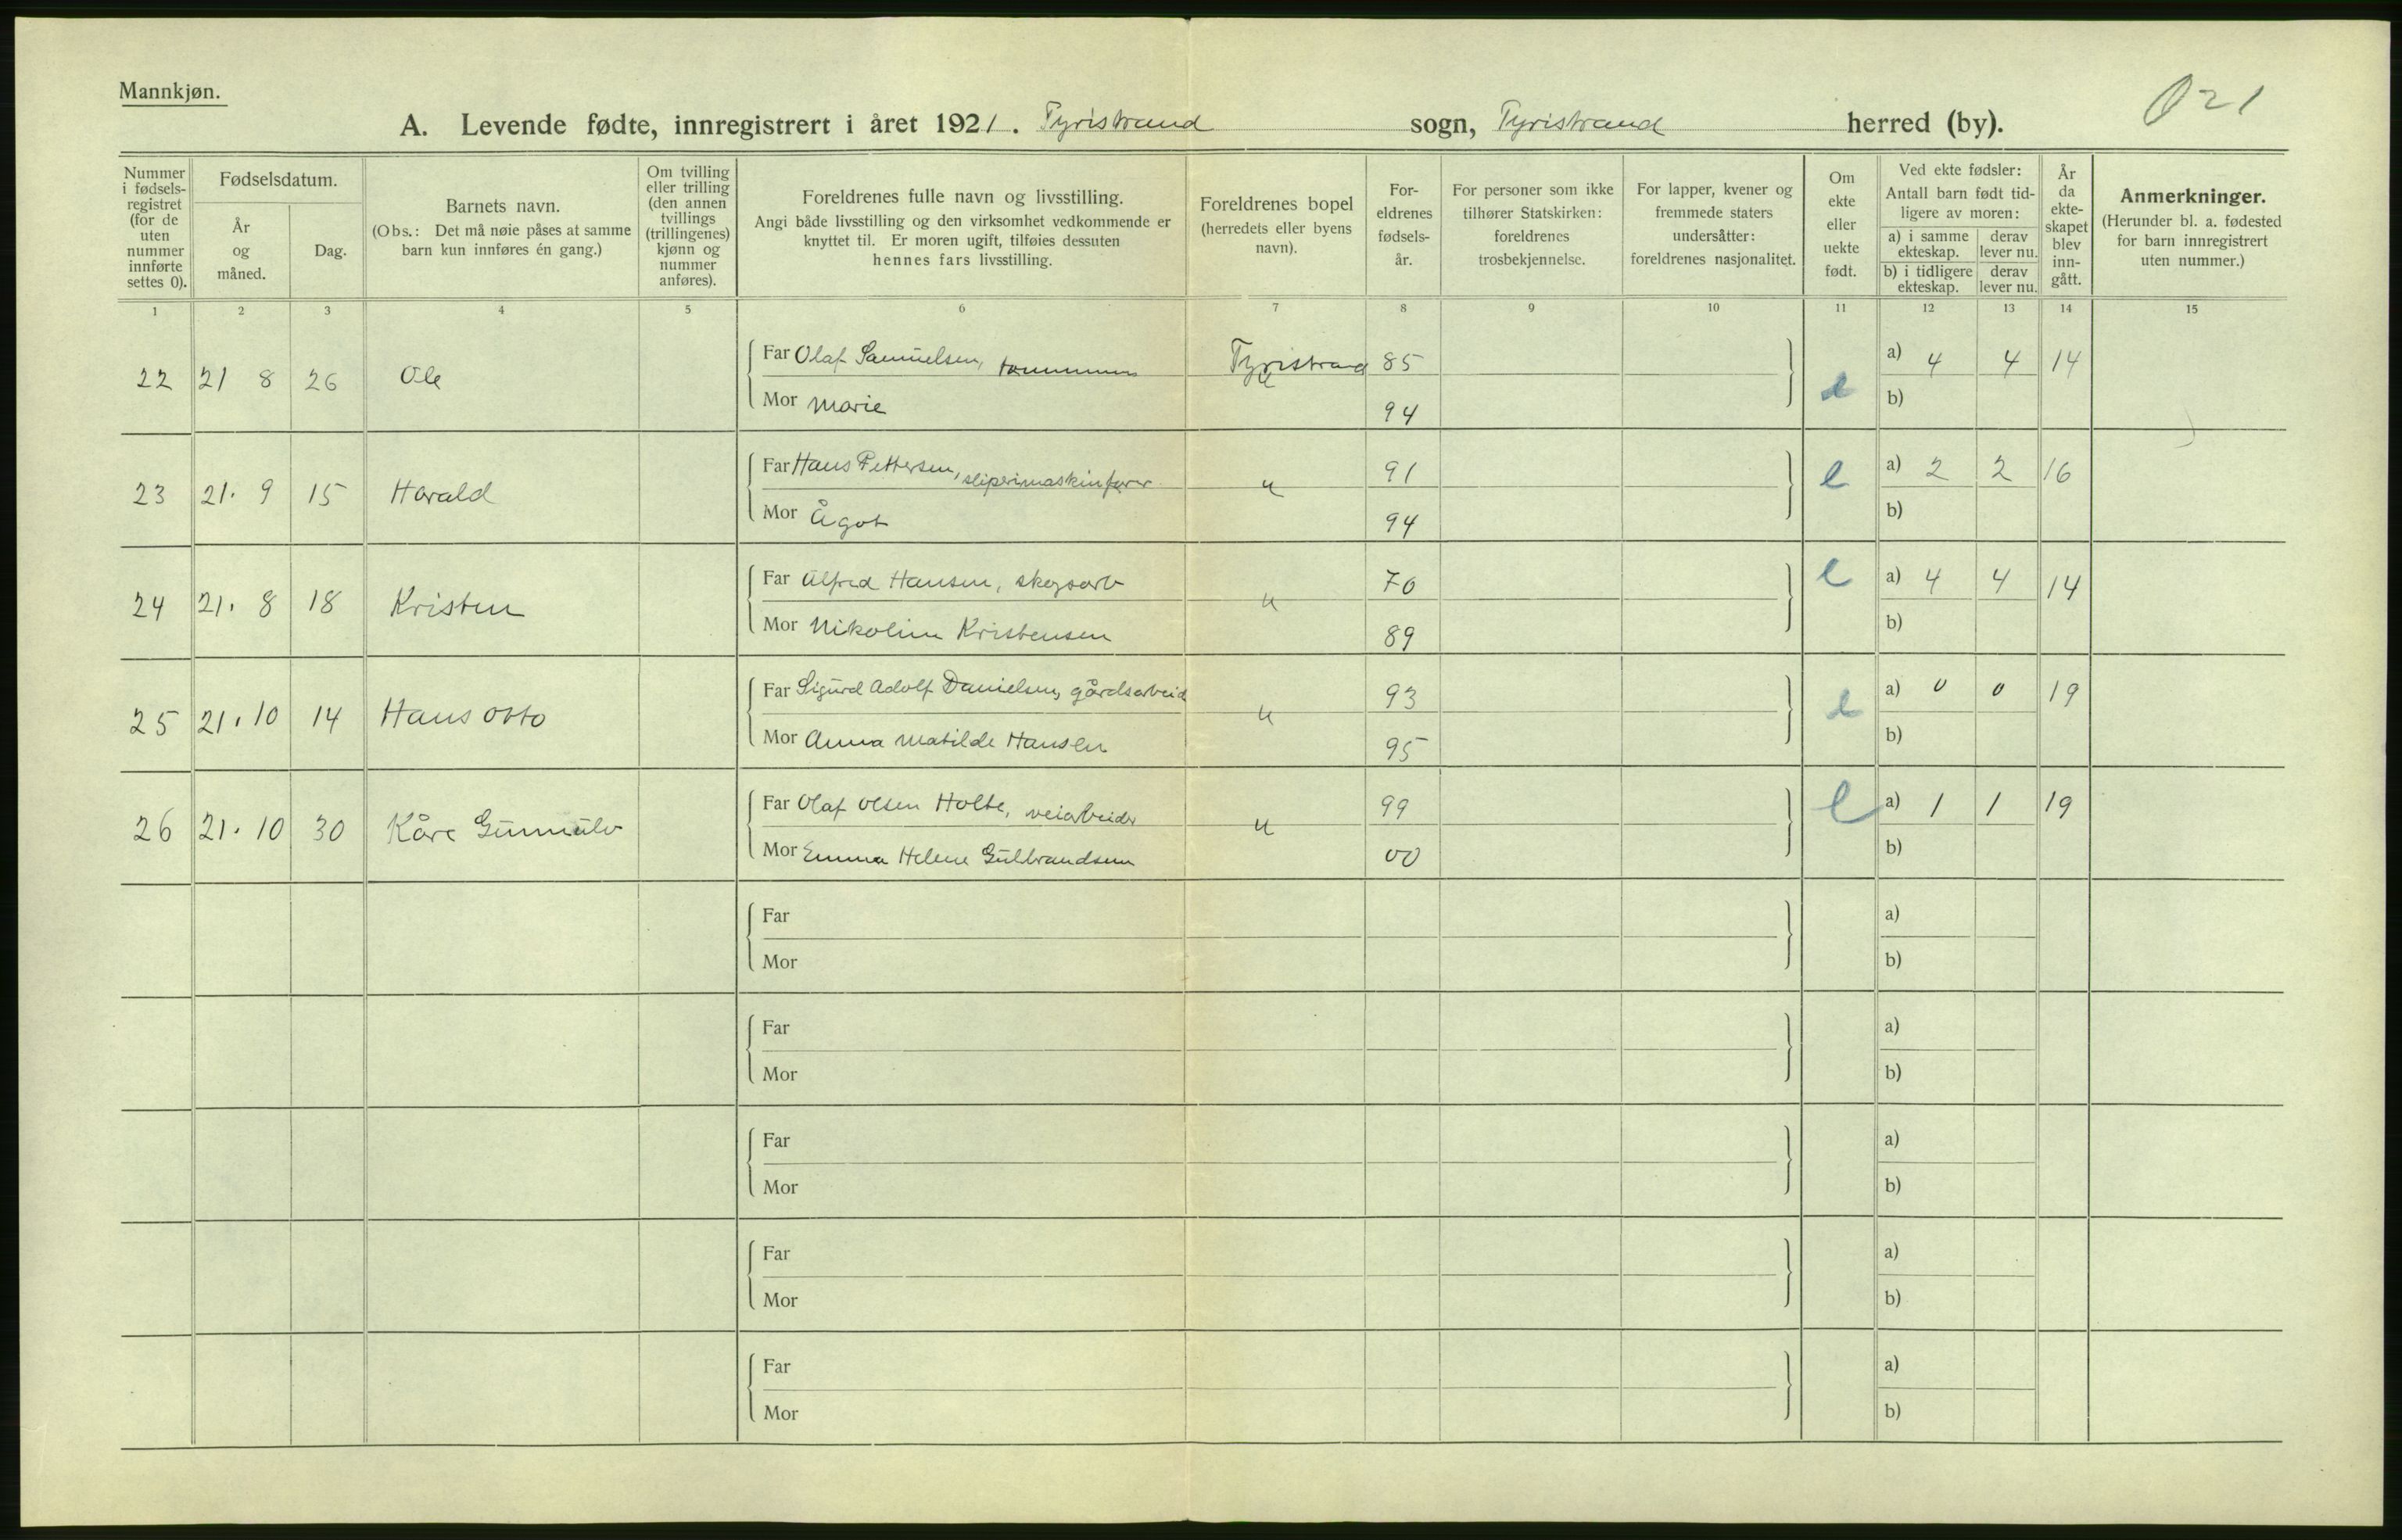 Mannkjøn.
021
A. Levende fødte, innregistrert i året 1921. Tyristrand sogn, Tyristrand herred (by).
Nummer i fødselsregistret (for de uten nummer innførte settes 0).
Fødselsdatum.
År og måned.
Dag.
Barnets navn.
(Obs.: Det må nøie påses at samme barn kun innføres én gang.)
Om tvilling eller trilling (den annen tvillings (trillingenes) kjønn og nummer anføres).
Foreldrenes fulle navn og livsstilling.
Angi både livsstilling og den virksomhet vedkommende er knyttet til. Er moren ugift, tilføies dessuten hennes fars livsstilling.
Foreldrenes bopel (herredets eller byens navn).
Foreldrenes fødselsår.
For personer som ikke tilhører Statskirken: foreldrenes trosbekjennelse.
For lapper, kvener og fremmede staters undersåtter: foreldrenes nasjonalitet.
Om ekte eller uekte født.
Ved ekte fødsler:
Antall barn født tidligere av moren:
a) i samme ekteskap. derav lever nu.
b) i tidligere ekteskap. derav lever nu.
År da ekteskapet blev inngått.
Anmerkninger.
(Herunder bl. a. fødested for barn innregistrert uten nummer.)
1 2 3 4 5 6 7 8 9 10 11 12 13 14 15
22 21 8 26 Ole Far Olaf Samuelsen, Tyristrand 85 e a) 4 4 14
Mor Marie 94 b)
23 21. 9 15 Harald Far Hans Pettersen, sliperimaskinfører " 91 e a) 2 2 16
Mor Ågot 94 b)
24 21. 8 18 Kristen Far Alfred Hansen, skogsarb " 70 e a) 4 4 14
Mor Nikoline Kristensen 89 b)
25 21. 10 14 Hans Otto Far Sigurd Adolf Danielsen, gårdsarbeid " 93 e a) 0 0 19
Mor Anna Matilde Hansen 95 b)
26 21. 10 30 Kåre Gunnulv Far Olaf Olsen Holte, veiarbeider " 99 e a) 1 1 19
Mor Emma Helene Gulbrandsen 00 b)
Far a)
Mor b)
Far a)
Mor b)
Far a)
Mor b)
Far a)
Mor b)
Far a)
Mor b)